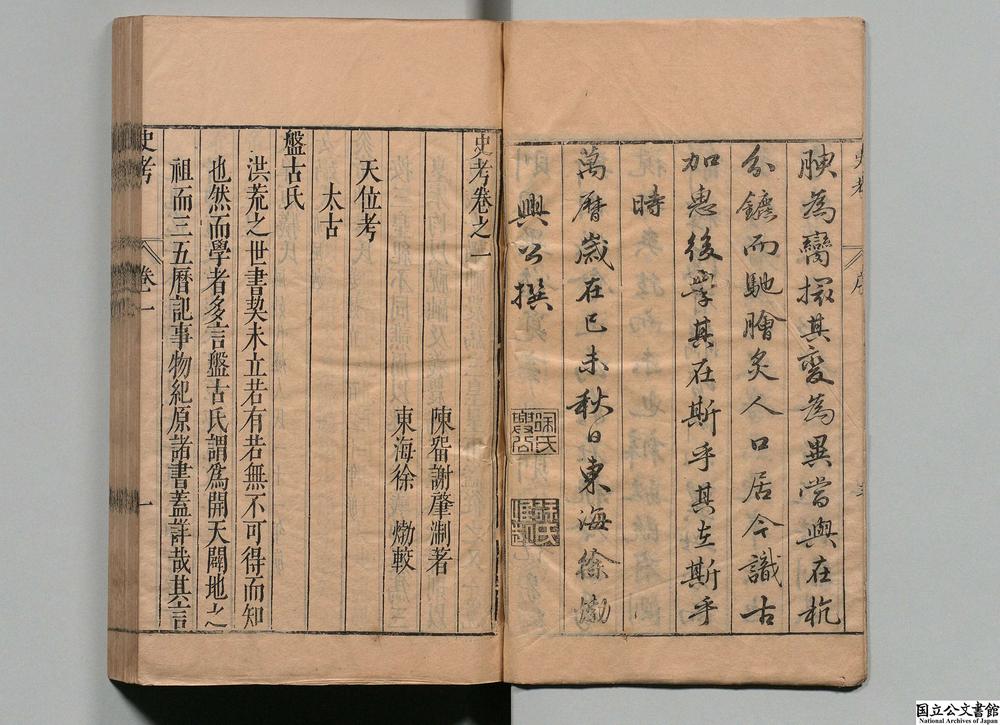 腴為臠摭其变為異當與在杭
分鑣而馳膾炙人口居今識古
加惠後學其在斯乎其在斯乎
時
萬曆歲在己未秋日東海徐𤊹
興公撰
徐氏興公
史考卷之一
陳留謝肇淛著
東海徐𤊹較
天位考
太古
盤古氏
洪荒之世書契未立若有若無不可得而知
也然而學者多言盤古氏謂爲開天闢地之
祖而三五曆記事物紀原諸書蓋詳哉其言
史考
卷一
一
国立公文書館
National Archives of Japan